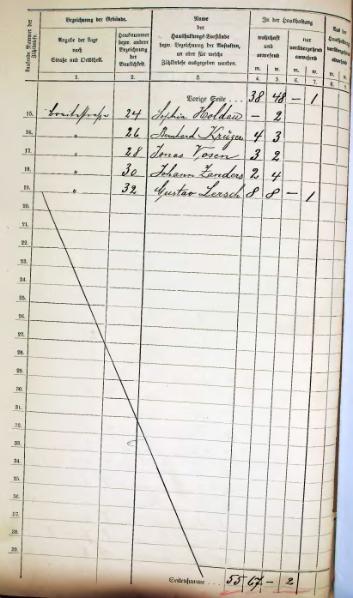 Laufende Nummer der Zählbriefe.
Bezeichnung der Gebäude.
Angabe der Lage nach Straße und Ortsteil.
Hausnummer bezw. andere Bezeichnung der Baulichkeit
Name der Haushaltungs-Vorstände bezw. Bezeichnung der Anstalten, an oder für welche Zählbriefe ausgegeben worden.
In der Haushaltung
wohnhaft und anwesend
nur vorübergehend anwesend
m. w. m. w.
1. 2. 3. 4. 5. 6. 7.
Vorige Seite 38 48 – 1
15. 24 Sophia Holdau – 2
16. " 26 Bernhard Krüger 4 3
17. " 28 Jonas Vosen 3 2
18. " 30 Johann Zanders 2 4
19. " 32 Gustav Lersch 8 8 – 1
20.
21.
22.
23.
24.
25.
26.
27.
28.
29.
30.
31.
32.
33.
34.
35.
36.
37.
38.
39.
Seitensumme 55 67 – 2